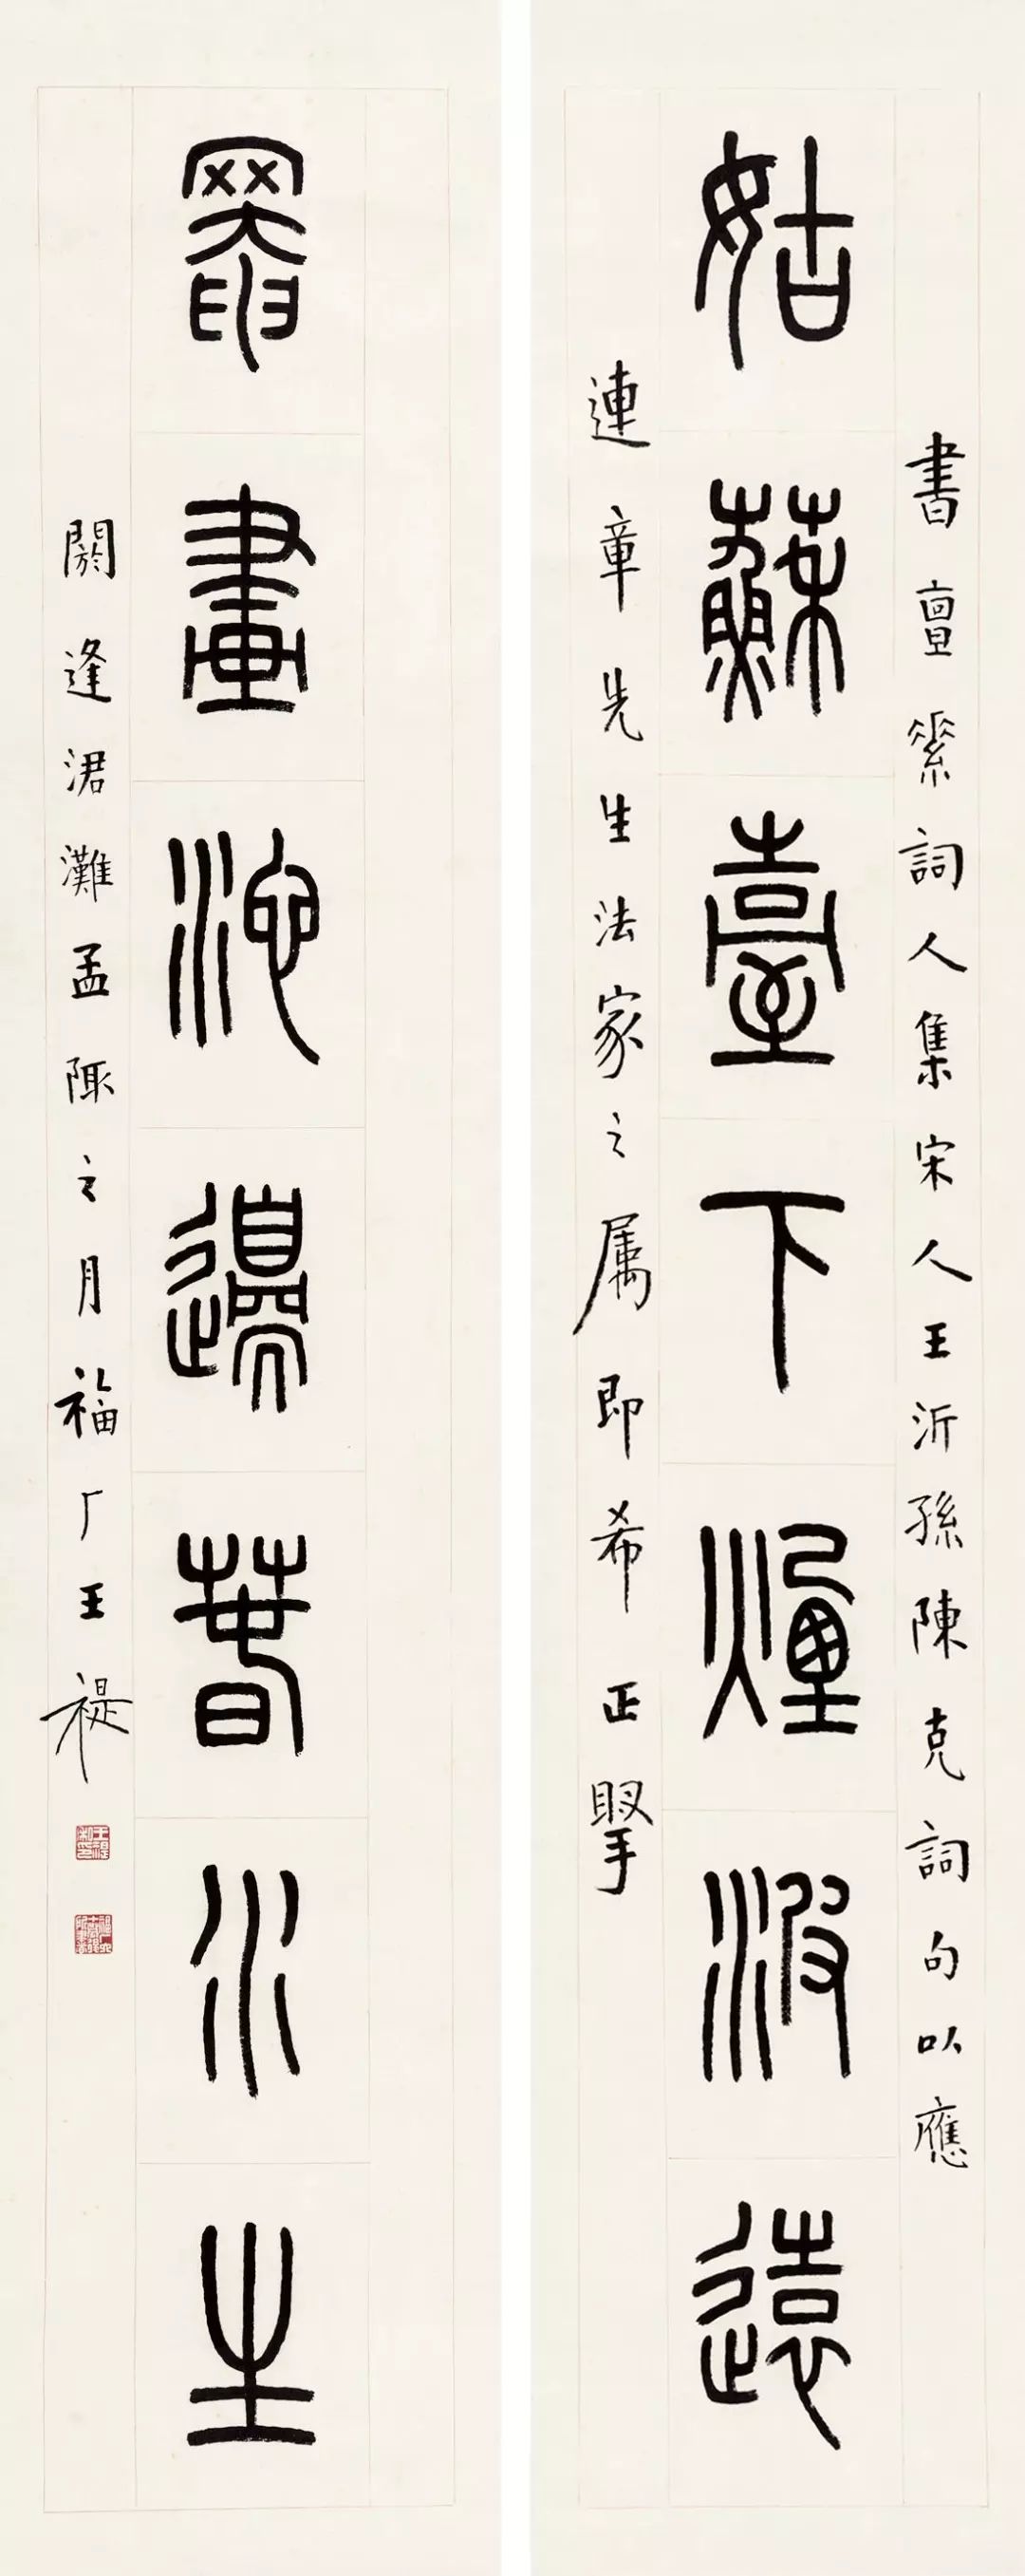 書亶素詞人集宋人王沂孫陳克詞句以應
姑蘇臺下煙波遠
連章先生法家之属即希正掔
罨畫池邊春水生
閼逢涒灘孟陬之月福厂王禔